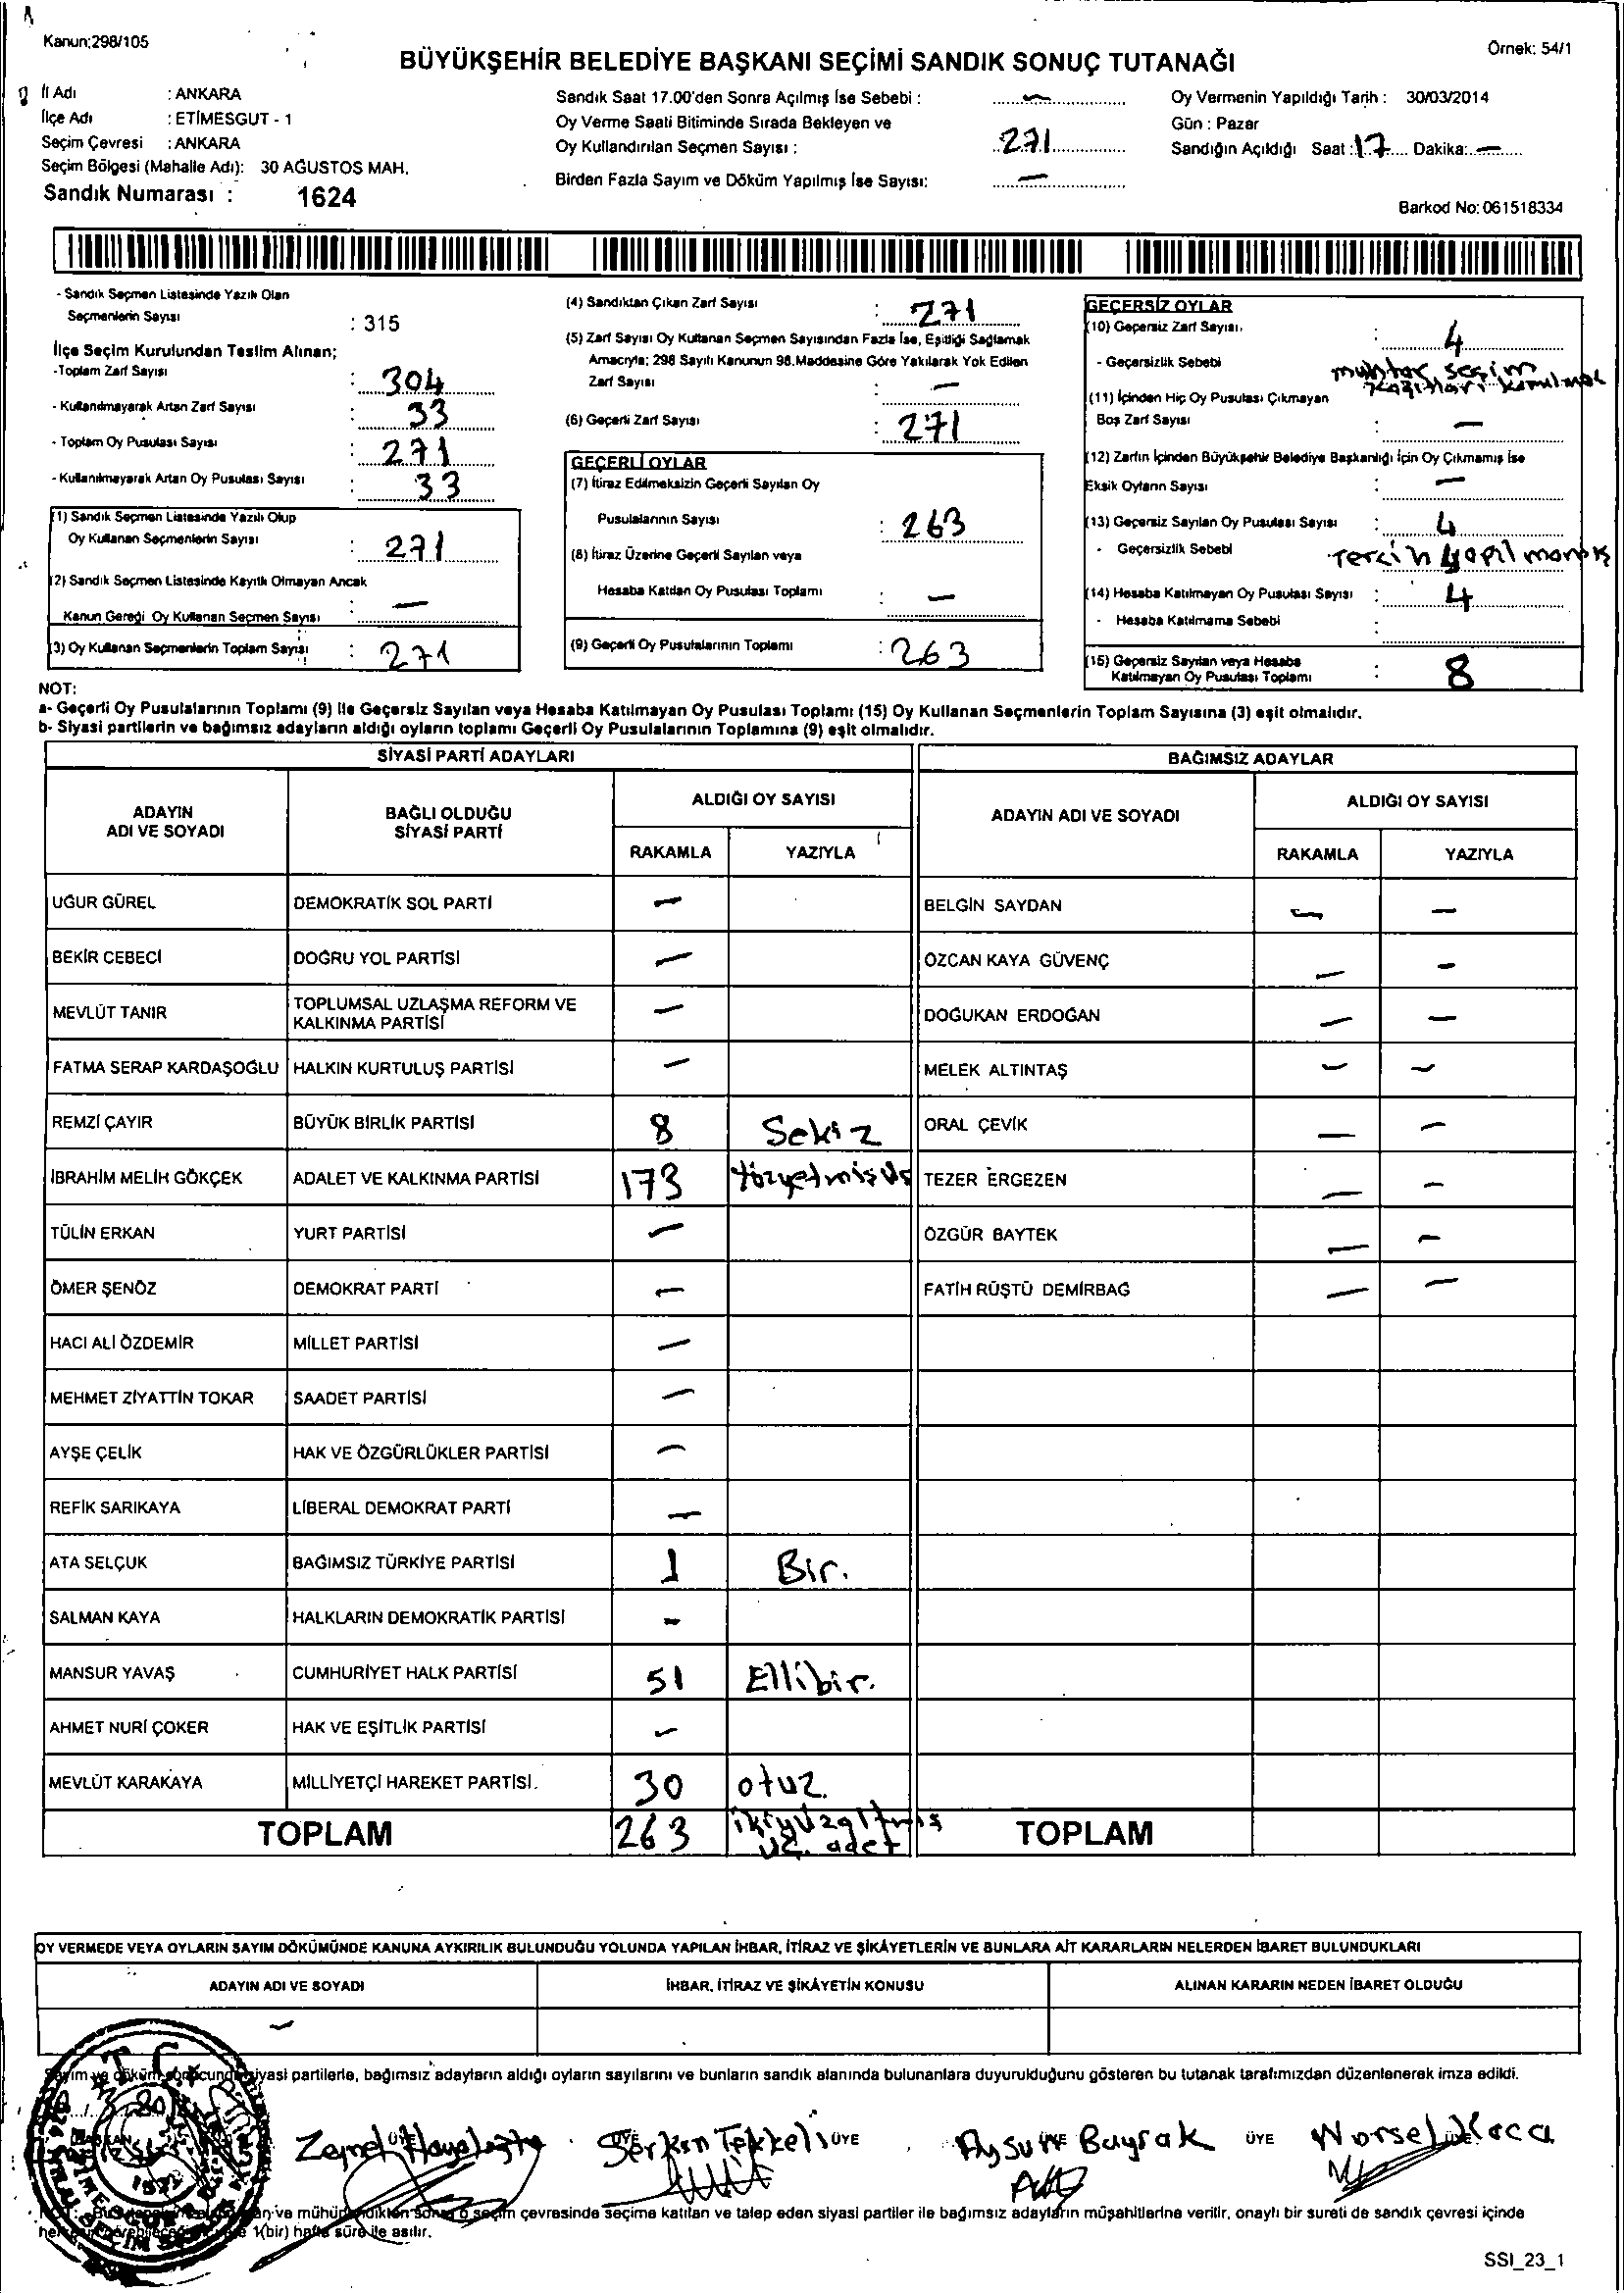 Kanun:298/105
Örnek: 54/1
BÜYÜKŞEHİR BELEDİYE BAŞKANI SEÇİMİ SANDIK SONUÇ TUTANAĞI
İl Adı : ANKARA
İlçe Adı : ETİMESGUT - 1
Seçim Çevresi : ANKARA
Seçim Bölgesi (Mahalle Adı): 30 AĞUSTOS MAH.
Sandık Numarası : 1624
Sandık Saat 17.00'den Sonra Açılmış İse Sebebi : —
Oy Verme Saati Bitiminde Sırada Bekleyen ve
Oy Kullandırılan Seçmen Sayısı : 271
Birden Fazla Sayım ve Döküm Yapılmış İse Sayısı: —
Oy Vermenin Yapıldığı Tarih : 30/03/2014
Gün : Pazar
Sandığın Açıldığı Saat : 17 Dakika: —
Barkod No: 061518334
- Sandık Seçmen Listesinde Yazılı Olan
Seçmenlerin Sayısı : 315
İlçe Seçim Kurulundan Teslim Alınan;
-Toplam Zarf Sayısı : 304
- Kullanılmayarak Artan Zarf Sayısı : 33
- Toplam Oy Pusulası Sayısı : 271
- Kullanılmayarak Artan Oy Pusulası Sayısı : 33
(1) Sandık Seçmen Listesinde Yazılı Olup
Oy Kullanan Seçmenlerin Sayısı : 271
(2) Sandık Seçmen Listesinde Kayıtlı Olmayan Ancak
Kanun Gereği Oy Kullanan Seçmen Sayısı : —
(3) Oy Kullanan Seçmenlerin Toplam Sayısı : 271
(4) Sandıktan Çıkan Zarf Sayısı : 271
(5) Zarf Sayısı Oy Kullanan Seçmen Sayısından Fazla İse, Eşitliği Sağlamak
Amacıyla; 298 Sayılı Kanunun 98.Maddesine Göre Yakılarak Yok Edilen
Zarf Sayısı : —
(6) Geçerli Zarf Sayısı : 271
GEÇERLİ OYLAR
(7) İtiraz Edilmeksizin Geçerli Sayılan Oy
Pusulalarının Sayısı : 263
(8) İtiraz Üzerine Geçerli Sayılan veya
Hesaba Katılan Oy Pusulası Toplamı : —
(9) Geçerli Oy Pusulalarının Toplamı : 263
GEÇERSİZ OYLAR
(10) Geçersiz Zarf Sayısı. : 4
- Geçersizlik Sebebi muhtar seçim
kağıtları konulmak
(11) İçinden Hiç Oy Pusulası Çıkmayan
Boş Zarf Sayısı : —
(12) Zarfın İçinden Büyükşehir Belediye Başkanlığı İçin Oy Çıkmamış İse
Eksik Oyların Sayısı : —
(13) Geçersiz Sayılan Oy Pusulası Sayısı : 4
- Geçersizlik Sebebi Tercih yapılmamış
(14) Hesaba Katılmayan Oy Pusulası Sayısı : 4
- Hesaba Katılmama Sebebi :
(15) Geçersiz Sayılan veya Hesaba
Katılmayan Oy Pusulası Toplamı : 8
NOT:
a- Geçerli Oy Pusulalarının Toplamı (9) ile Geçersiz Sayılan veya Hesaba Katılmayan Oy Pusulası Toplamı (15) Oy Kullanan Seçmenlerin Toplam Sayısına (3) eşit olmalıdır.
b- Siyasi partilerin ve bağımsız adayların aldığı oyların toplamı Geçerli Oy Pusulalarının Toplamına (9) eşit olmalıdır.
SİYASİ PARTİ ADAYLARI
BAĞIMSIZ ADAYLAR
ADAYIN
ADI VE SOYADI
BAĞLI OLDUĞU
SİYASİ PARTİ
ALDIĞI OY SAYISI
RAKAMLA YAZIYLA
ADAYIN ADI VE SOYADI
ALDIĞI OY SAYISI
RAKAMLA YAZIYLA
UĞUR GÜREL DEMOKRATİK SOL PARTİ — BELGİN SAYDAN — —
BEKİR CEBECİ DOĞRU YOL PARTİSİ — ÖZCAN KAYA GÜVENÇ — —
MEVLÜT TANIR TOPLUMSAL UZLAŞMA REFORM VE KALKINMA PARTİSİ — DOĞUKAN ERDOĞAN — —
FATMA SERAP KARDAŞOĞLU HALKIN KURTULUŞ PARTİSİ — MELEK ALTINTAŞ — —
REMZİ ÇAYIR BÜYÜK BİRLİK PARTİSİ 8 Sekiz ORAL ÇEVİK — —
İBRAHİM MELİH GÖKÇEK ADALET VE KALKINMA PARTİSİ 173 Yüzyetmişüç TEZER ERGEZEN — —
TÜLİN ERKAN YURT PARTİSİ — ÖZGÜR BAYTEK — —
ÖMER ŞENÖZ DEMOKRAT PARTİ — FATİH RÜŞTÜ DEMİRBAĞ — —
HACI ALİ ÖZDEMİR MİLLET PARTİSİ —
MEHMET ZİYATTİN TOKAR SAADET PARTİSİ —
AYŞE ÇELİK HAK VE ÖZGÜRLÜKLER PARTİSİ —
REFİK SARIKAYA LİBERAL DEMOKRAT PARTİ —
ATA SELÇUK BAĞIMSIZ TÜRKİYE PARTİSİ 1 Bir.
SALMAN KAYA HALKLARIN DEMOKRATİK PARTİSİ —
MANSUR YAVAŞ CUMHURİYET HALK PARTİSİ 51 Ellibir.
AHMET NURİ ÇOKER HAK VE EŞİTLİK PARTİSİ —
MEVLÜT KARAKAYA MİLLİYETÇİ HAREKET PARTİSİ. 30 otuz.
TOPLAM 263 ikiyüzaltmış üç. adet TOPLAM
OY VERMEDE VEYA OYLARIN SAYIM DÖKÜMÜNDE KANUNA AYKIRILIK BULUNDUĞU YOLUNDA YAPILAN İHBAR, İTİRAZ VE ŞİKÂYETLERİN VE BUNLARA AİT KARARLARIN NELERDEN İBARET BULUNDUKLARI
ADAYIN ADI VE SOYADI İHBAR, İTİRAZ VE ŞİKÂYETİN KONUSU ALINAN KARARIN NEDEN İBARET OLDUĞU
—
Sayım ve döküm sonucunda siyasi partilerle, bağımsız adayların aldığı oyların sayılarını ve bunların sandık alanında bulunanlara duyurulduğunu gösteren bu tutanak tarafımızdan düzenlenerek imza edildi.
BAŞKAN ÜYE ÜYE ÜYE ÜYE ÜYE ÜYE
Serkan Tekkeli Aysun Bayrak
çevresinde seçime katılan ve talep eden siyasi partiler ile bağımsız adayların müşahitlerine verilir, onaylı bir sureti de sandık çevresi içinde
1(bir) hafta süre ile asılır.
SSI_23_1